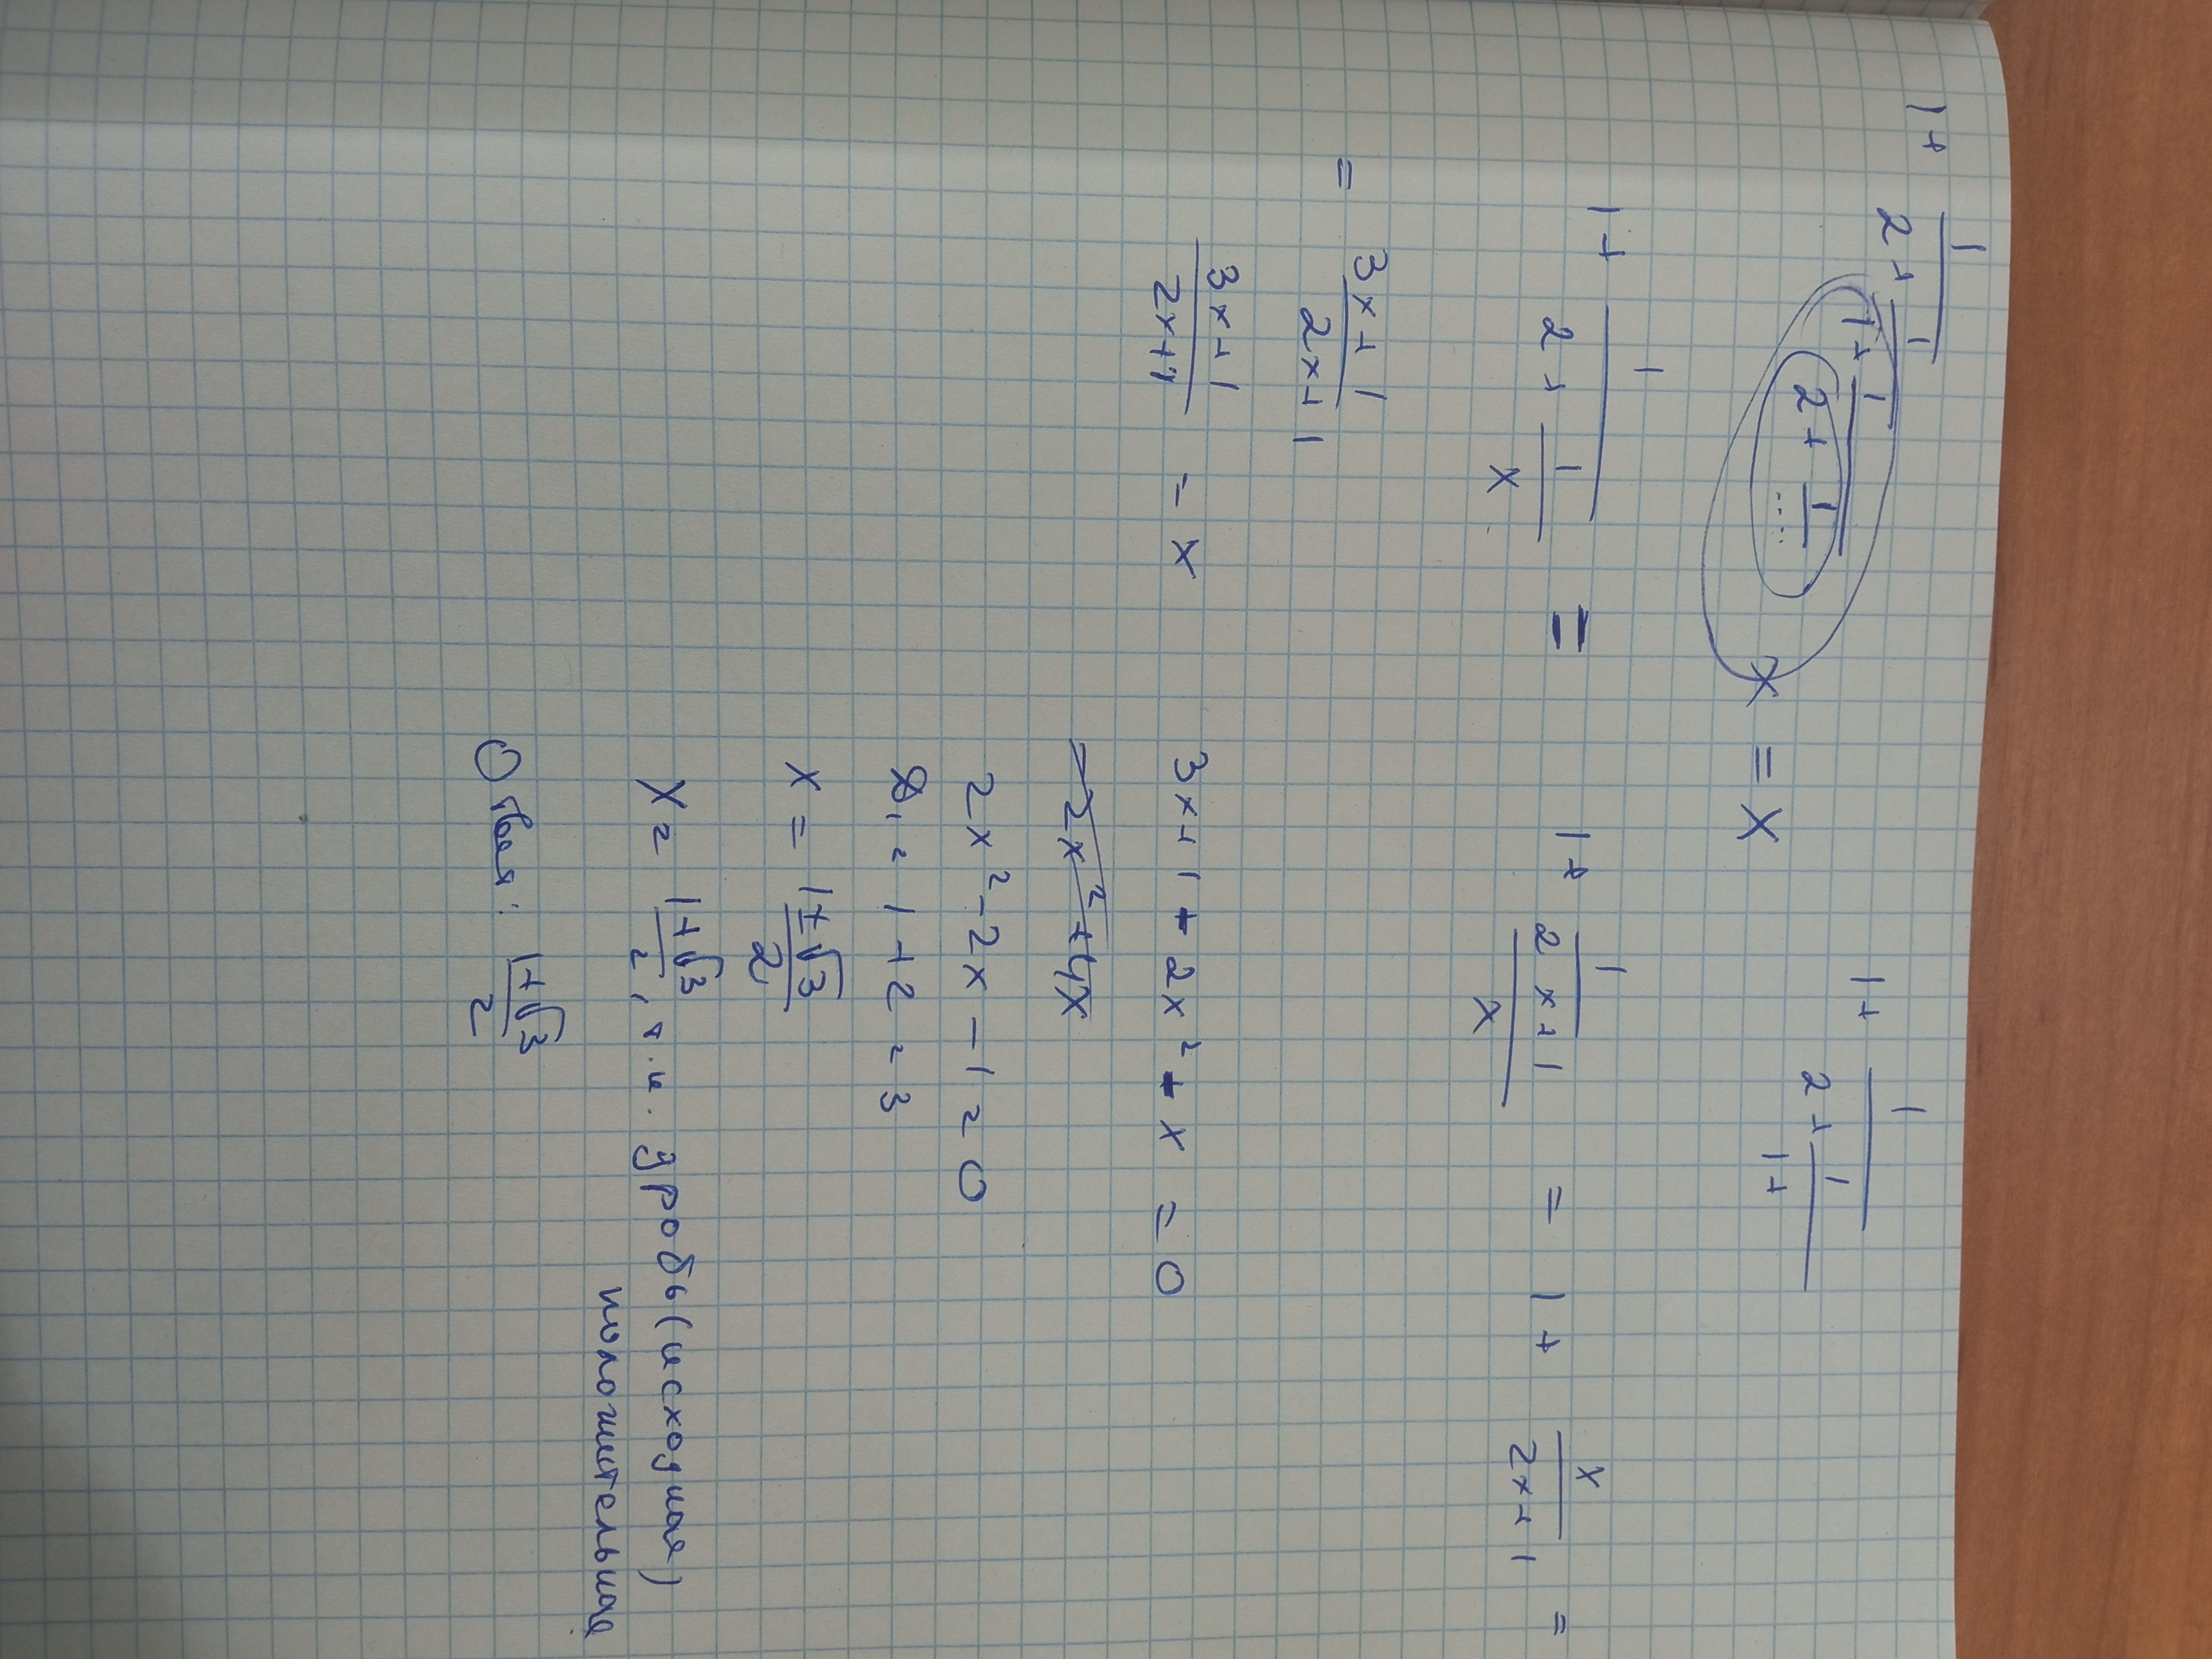 1 + 1/(2 + 1/(1 + 1/(2 + 1/....))) x = x
1 + 1/(2 + 1/(1 +
1 + 1/(2 + 1/x) = 1 + 1/((2x+1)/x) = 1 + x/(2x+1) =
= (3x+1)/(2x+1)
(3x+1)/(2x+1) = x
3x+1 - 2x² - x = 0
-2x² + 4x
2x² - 2x - 1 = 0
D₁ = 1 + 2 = 3
x = (1±√3)/2
x = (1+√3)/2, т.к. дробь (исходная)
положительная
Ответ: (1+√3)/2